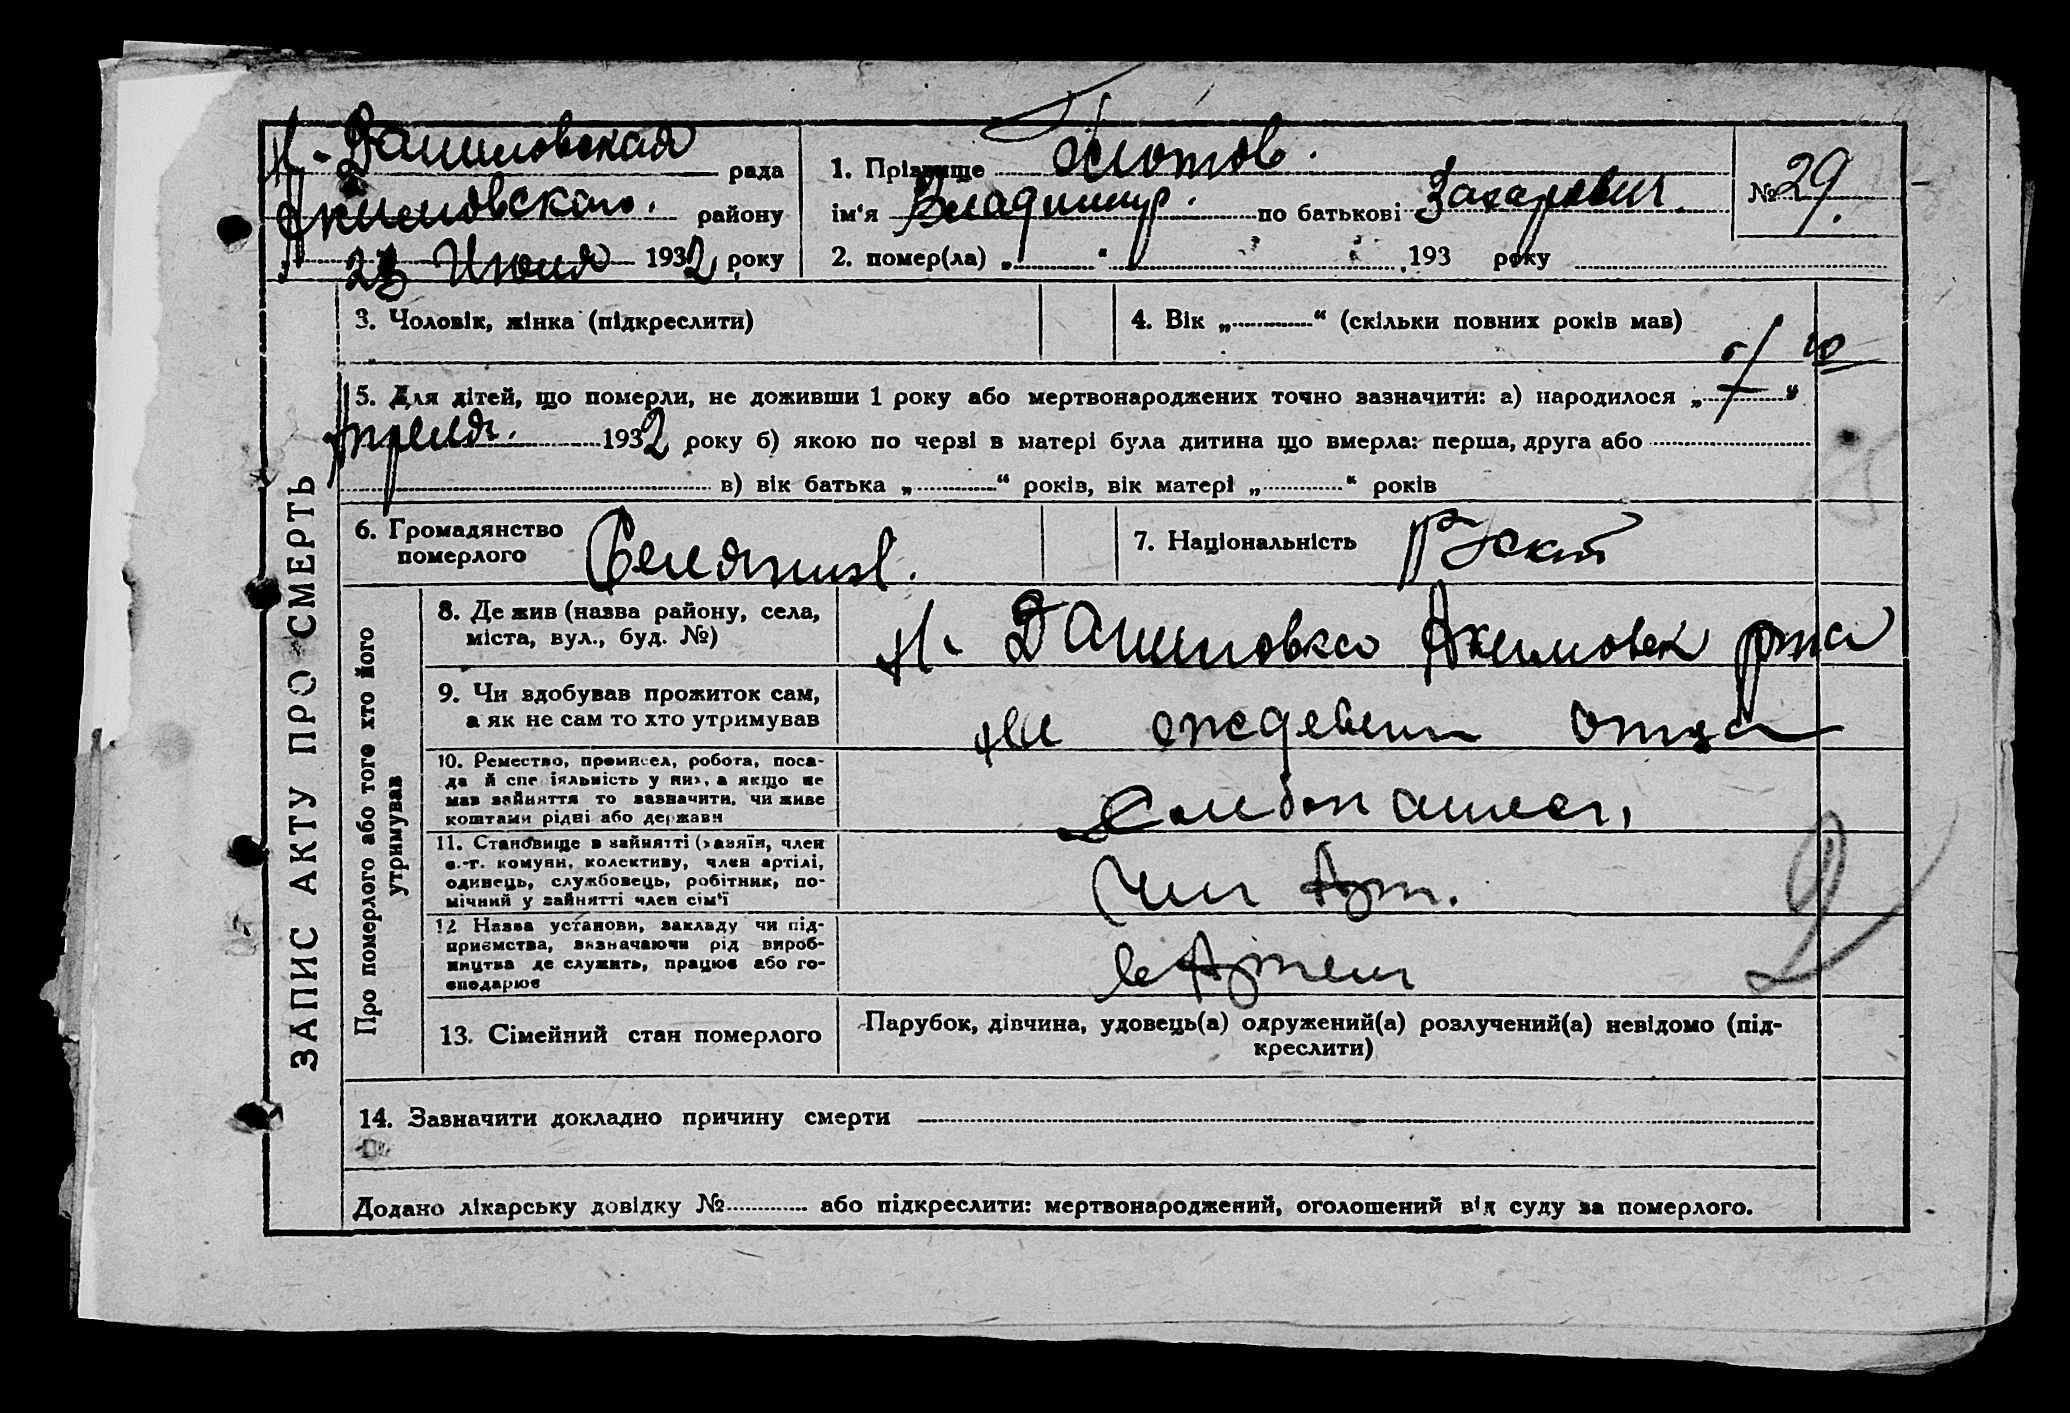 Н. Даниловская рада
Акимовского. району
„ 23 Июня 1932 року
1. Прізвище
ім‘я Владимир. по батькові Захарович
2. помер(ла) „ “ 193 року
№ 29.
ЗАПИС АКТУ ПРО СМЕРТЬ
3. Чоловік, жінка (підкреслити)
4. Вік „ “ (скільки повних років мав)
5. Для дітей, що померли, не доживши 1 року або мертвонароджених точно зазначити: а) народилося „ “
Апреля. 1932 року б) якою по черзі в матері була дитина що вмерла: перша, друга або
в) вік батька „ “ років, вік матері „ “ років
6. Громадянство
померлого
7. Національність
Про померлого або того хто його
утримував
8. Де жив (назва району, села,
міста, вул., буд. №)
Н. Даниловка Акимовск р-на
9. Чи здобував прожиток сам,
а як не сам то хто утримував
на иждевени отца
10. Ремество, промисел, робота, поса-
да й спеціяльність у них, а якщо не
мав зайняття то зазначити, чи живе
коштами рідні або держави
11. Становище в зайнятті (хазяїн, член
с.-г. комуни, колективу, член артілі,
одинець, службовець, робітник, по-
мічний у зайнятті член сім‘ї
Член Арт.
12 Назва установи, закладу чи під-
приємства, зазначаючи рід вироб-
ництва де служить, працює або го-
сподарює
в Артели
13. Сімейний стан померлого
Парубок, дівчина, удовець(а) одружений(а) розлучений(а) невідомо (під-
креслити)
14. Зазначити докладно причину смерти
Додано лікарську довідку № або підкреслити: мертвонароджений, оголошений від суду за померлого.